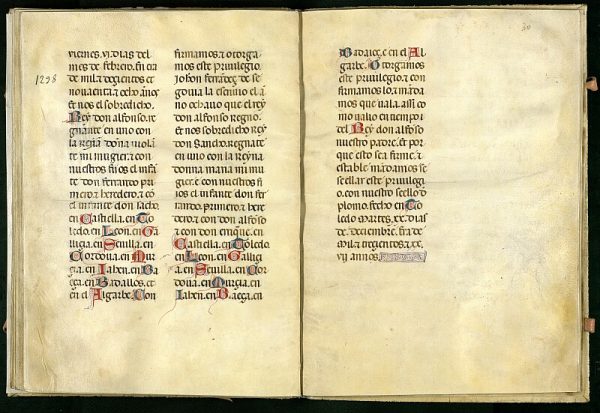 1298
viernes. vi. dias del
mes de febrero. En era
de mil ⁊ dozientos ⁊
nouaenta ⁊ ocho años.
Et nos el sobredicho.
Rey don alfonso. re
gnante en uno con
la reyna dona uiolãt
te mi mugier. ⁊ con
nuestros fijos el infã
te don ferrando pri
mero. ⁊ heredero. ⁊ cõ
el infante don sacho.
en Castiella. en To
ledo. en Leon. en Ga
llizia. en Seuilla. en
Cordoua. en Mur
cia. en Iahen. en Ba
eça. en Badalloz. et
en el Algarbe. Con
firmamos. ⁊ otorga
mos este priuilegio.
Johan ferrãdez de se
gouia la escriuio el a
no ochauo que el rey
don alfonso regno.
Et nos sobredicho rey
don Sancho. regnãte
en uno con la reyna
donna maria mi mu
gier. ⁊ con nuestros fi
jos el infante don fer
rando. primero ⁊ here
dero. ⁊ con don alfonso
⁊ con don enrique. en
Castiella. en Toledo.
en Leon. en Gallizi
a. en Seuilla. en Cor
doua. en Murcia. en
Iahen. en Baeça. en
30
Badaioz. ⁊ en el Al
garbe. Otorgamos
este priuilegio. ⁊ con
firmamos lo. ⁊ mãda
mos que uala. assi co
mo ualio en tiempo
del Rey don alfonso
nuestro padre. Et por
que esto sea firme. ⁊
estable. mãdamos se
seellar este priuilegi
o. con nuestro seello de
plomo. fecho en To
ledo martes. xx. dias
de deziembre. Era de
mil ⁊ trezientos ⁊ xx.
vij annos.